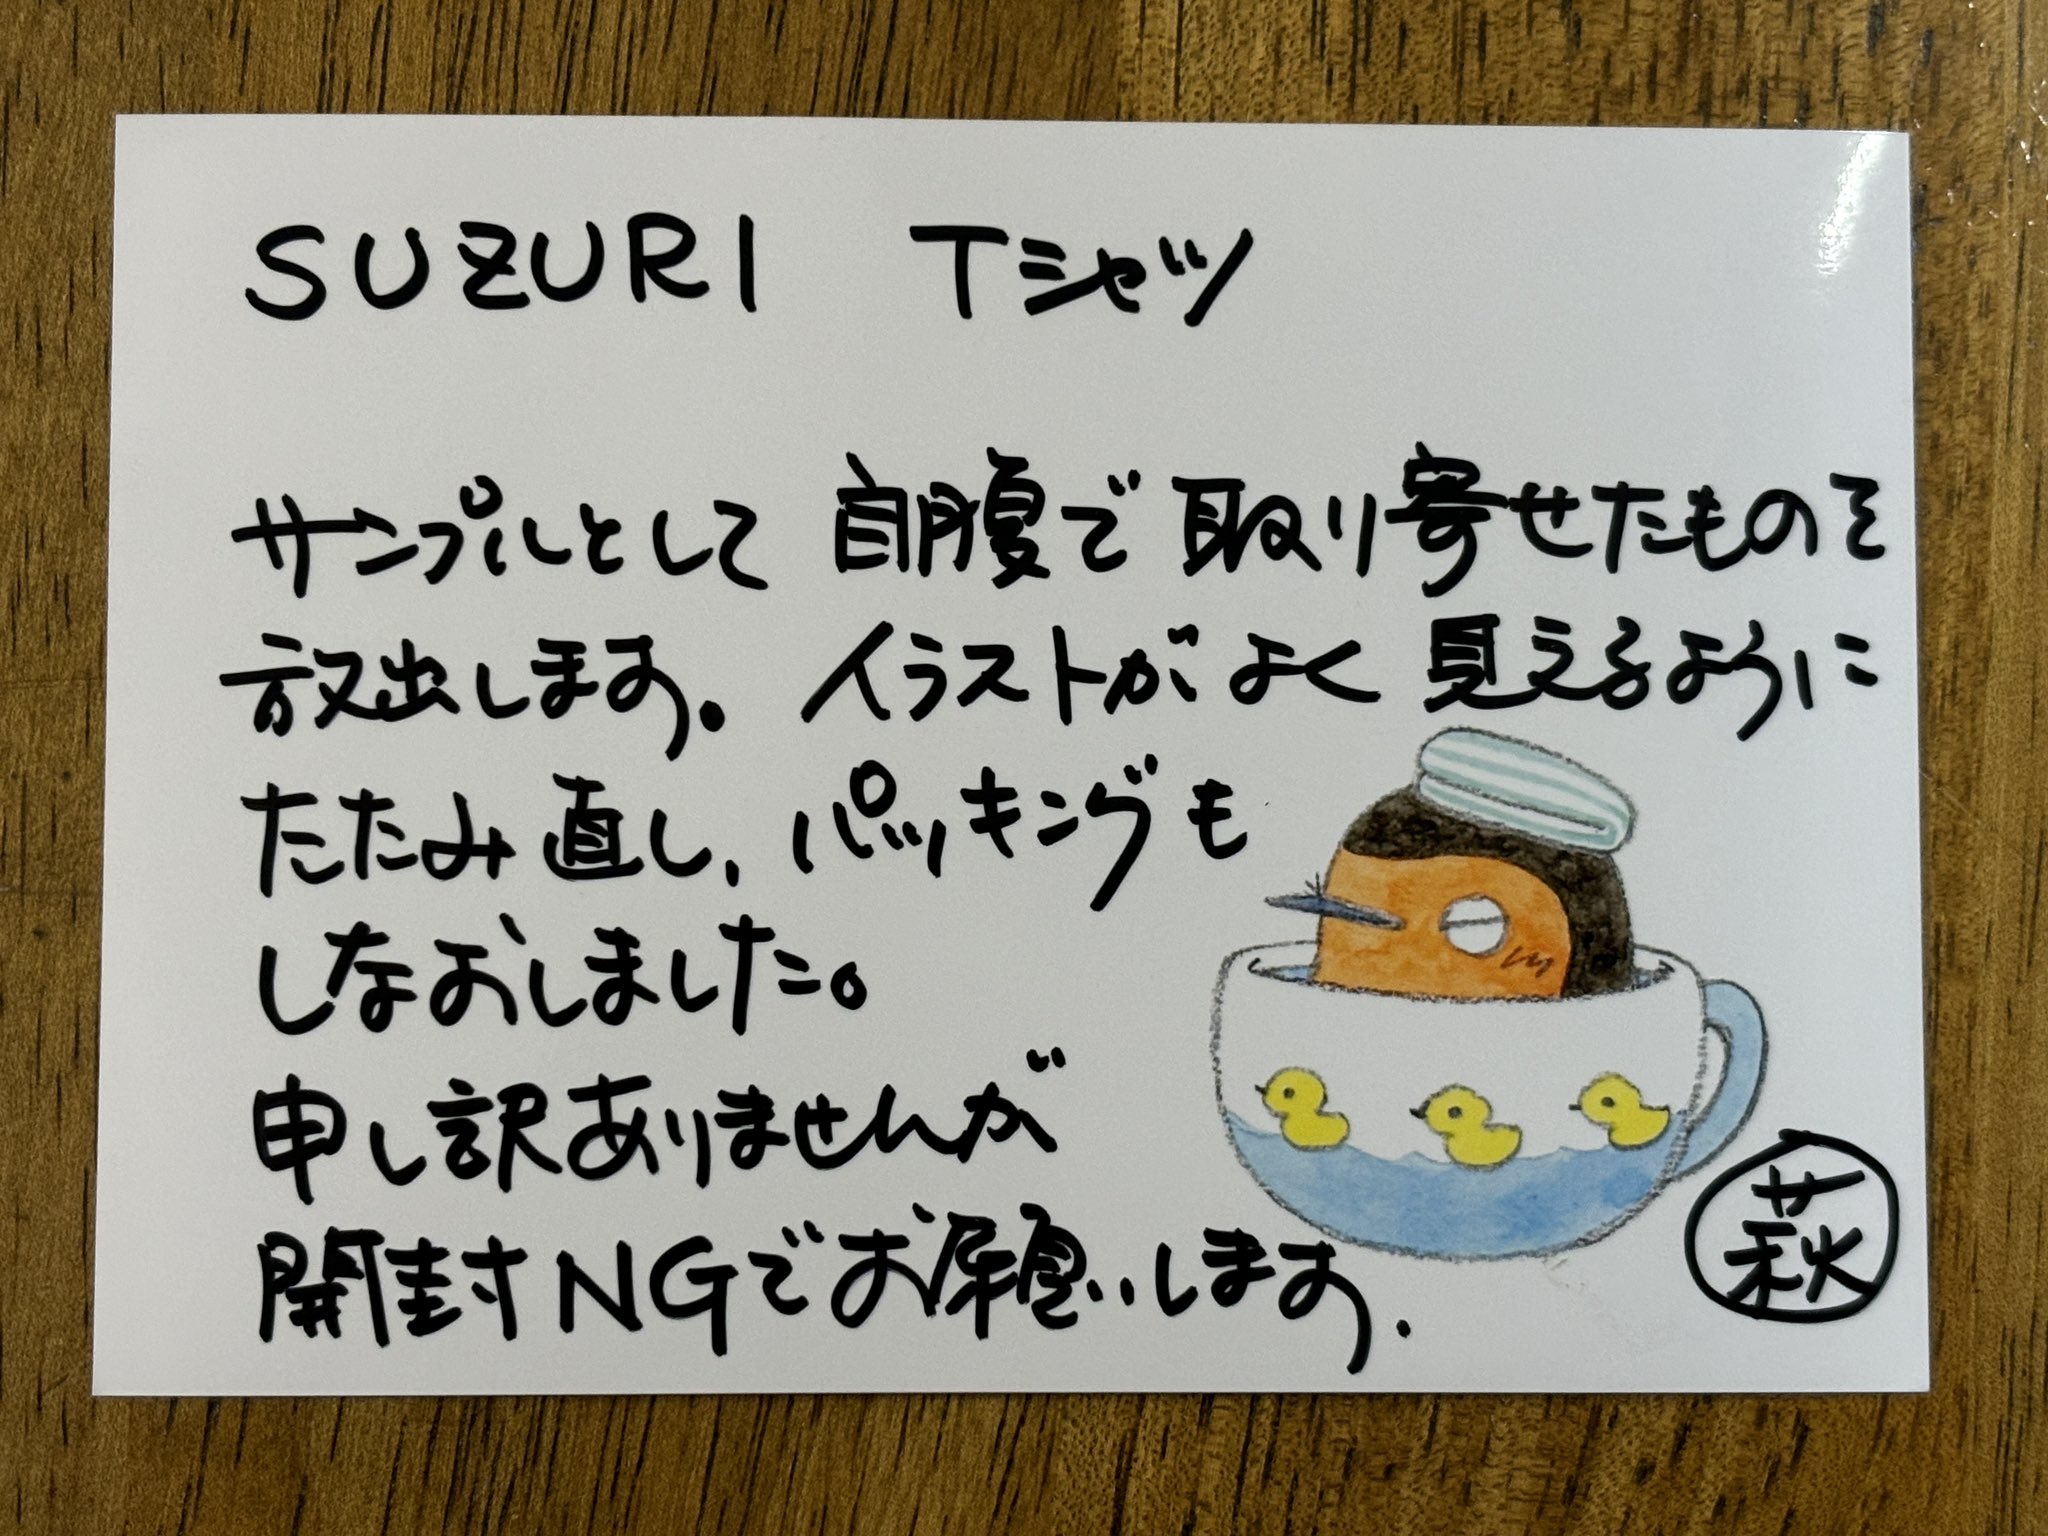 SUZURI Tシャツ
サンプルとして自腹で取り寄せたものを
放出します。イラストがよく見えるように
たたみ直し、パッキングも
しなおしました。
申し訳ありませんが
開封NGでお願いします.
萩